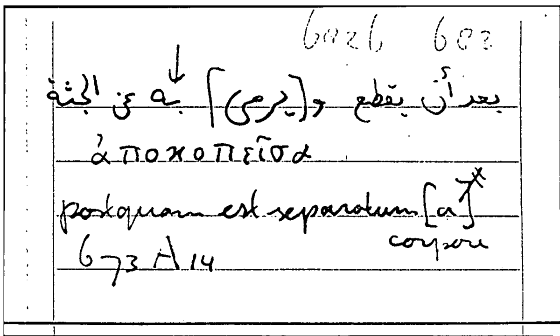 6026 603
بعد أن يقطع و[يرمى] به عن الجثة
ἀποκοπεῖσα
postquam est separatum [a]*
corpore
673 A 14